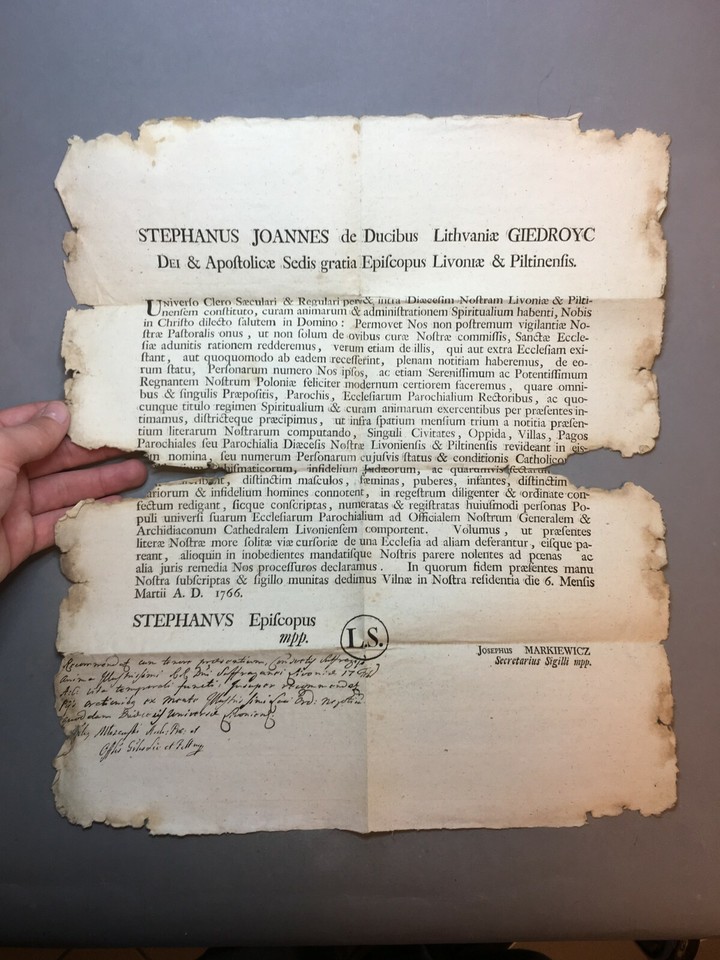 STEPHANUS JOANNES de Ducibus Lithvaniæ GIEDROYC
DEI & Apoſtolicæ Sedis gratia Epiſcopus Livoniæ & Piltinenſis.
Univerſo Clero Sæculari & Regulari per & intra Diæceſim Noſtram Livoniæ & Pilti-
nenſem conſtituto, curam animarum & adminiſtrationem Spiritualium habenti, Nobis
in Chriſto dilecto ſalutem in Domino: Permovet Nos non poſtremum vigilantiæ No-
ſtræ Paſtoralis onus, ut non ſolum de ovibus curæ Noſtræ commiſſis, Sanctæ Eccle-
ſiæ adunitis rationem redderemus, verum etiam de illis, qui aut extra Eccleſiam exi-
ſtant, aut quoquomodo ab eadem receſſerint, plenam notitiam haberemus, de eo-
rum ſtatu, Perſonarum numero Nos ipſos, ac etiam Sereniſſimum ac Potentiſſimum
Regnantem Noſtrum Poloniæ feliciter modernum certiorem faceremus, quare omni-
bus & ſingulis Præpoſitis, Parochis, Eccleſiarum Parochialium Rectoribus, ac quo-
cunque titulo regimen Spiritualium & curam animarum exercentibus per præſentes in-
timamus, diſtricteque præcipimus, ut infra ſpatium menſium trium a notitia præſen-
tium literarum Noſtrarum computando, Singuli Civitates, Oppida, Villas, Pagos
Parochiales ſeu Parochialia Diæceſis Noſtræ Livonienſis & Piltinenſis revideant in eis-
nomina, ſeu numerum Perſonarum cujuſvis ſtatus & conditionis Catholico
infidelium Judæorum, ac quarumvis
diſtinctim maſculos, fæminas, puberes, infantes, diſtinctim
& infidelium homines connotent, in regeſtrum diligenter & ordinate con-
fectum redigant, ſicque conſcriptas, numeratas & regiſtratas huiuſmodi perſonas Po-
puli univerſi ſuarum Eccleſiarum Parochialium ad Officialem Noſtrum Generalem &
Archidiaconum Cathedralem Livonienſem comportent. Volumus, ut præſentes
literæ Noſtræ more ſolitæ viæ curſoriæ de una Eccleſia ad aliam deferantur, eiſque pa-
reant, alioquin in inobedientes mandatiſque Noſtris parere nolentes ad pœnas ac
alia juris remedia Nos proceſſuros declaramus. In quorum fidem præſentes manu
Noſtra ſubſcriptas & ſigillo munitas dedimus Vilnæ in Noſtra reſidentia die 6. Menſis
Martii A. D. 1766.
STEPHANVS Epiſcopus
mpp.
L.S.
JOSEPHUS MARKIEWICZ
Secretarius Sigilli mpp.